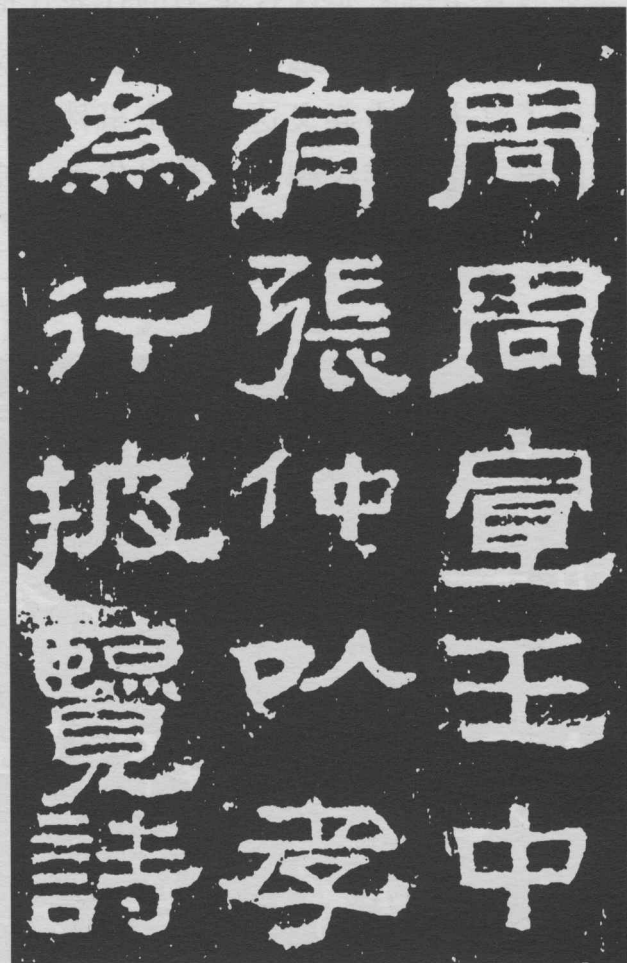 周周宣王中
有張仲以孝
為行披覽詩